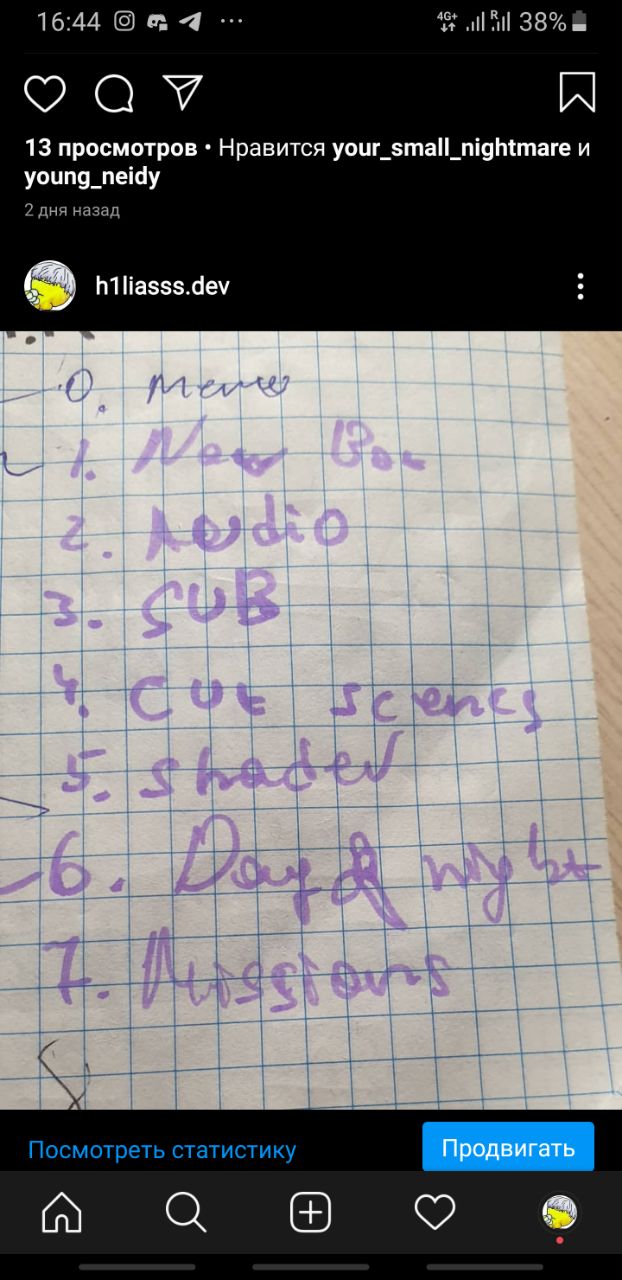 16:44 ... 4G+ R 38%
13 просмотров • Нравится your_small_nightmare и
young_neidy
2 дня назад
h1liasss.dev
0. Menu
1. New
2. Audio
3. SUB
4. Cut scenes
5. Shader
6. Day & night
7. Missions
Посмотреть статистику
Продвигать